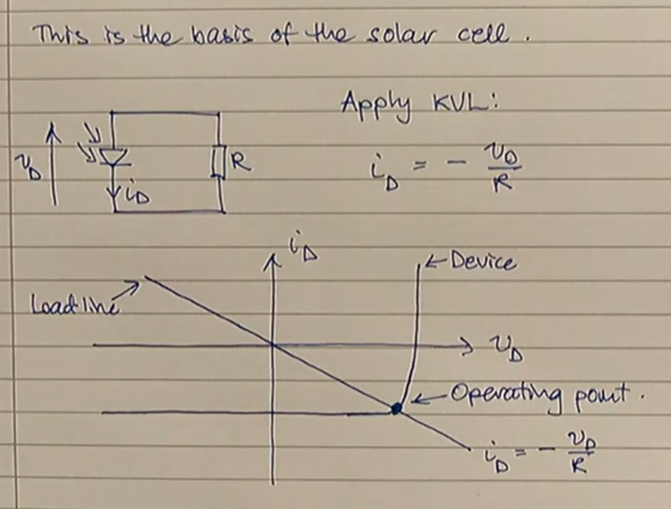 This is the basis of the solar cell.
Apply KVL:
v_D
R
i_D
i_D = - v_D/R
i_D
Device
Load line
v_D
Operating point.
i_D = - v_D/R